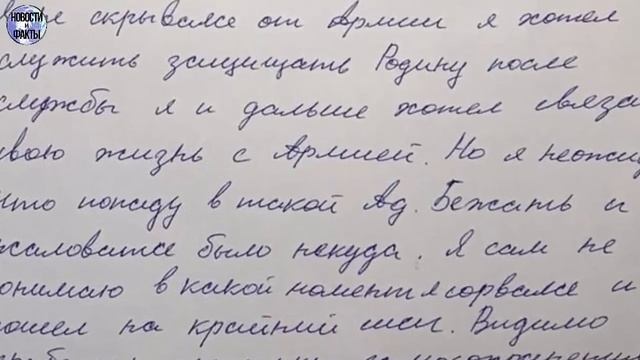 НОВОСТИ
И
ФАКТЫ
не скрывался от Армии я хотел
служить защищать Родину после
службы я и дальше хотел связа
свою жизнь с Армией. Но я неожид
что попаду в такой Ад. Бежать и
жаловатся было некуда. Я сам не
онимаю в какой момент я сорвался и
ошел на крайний шаг. Видимо